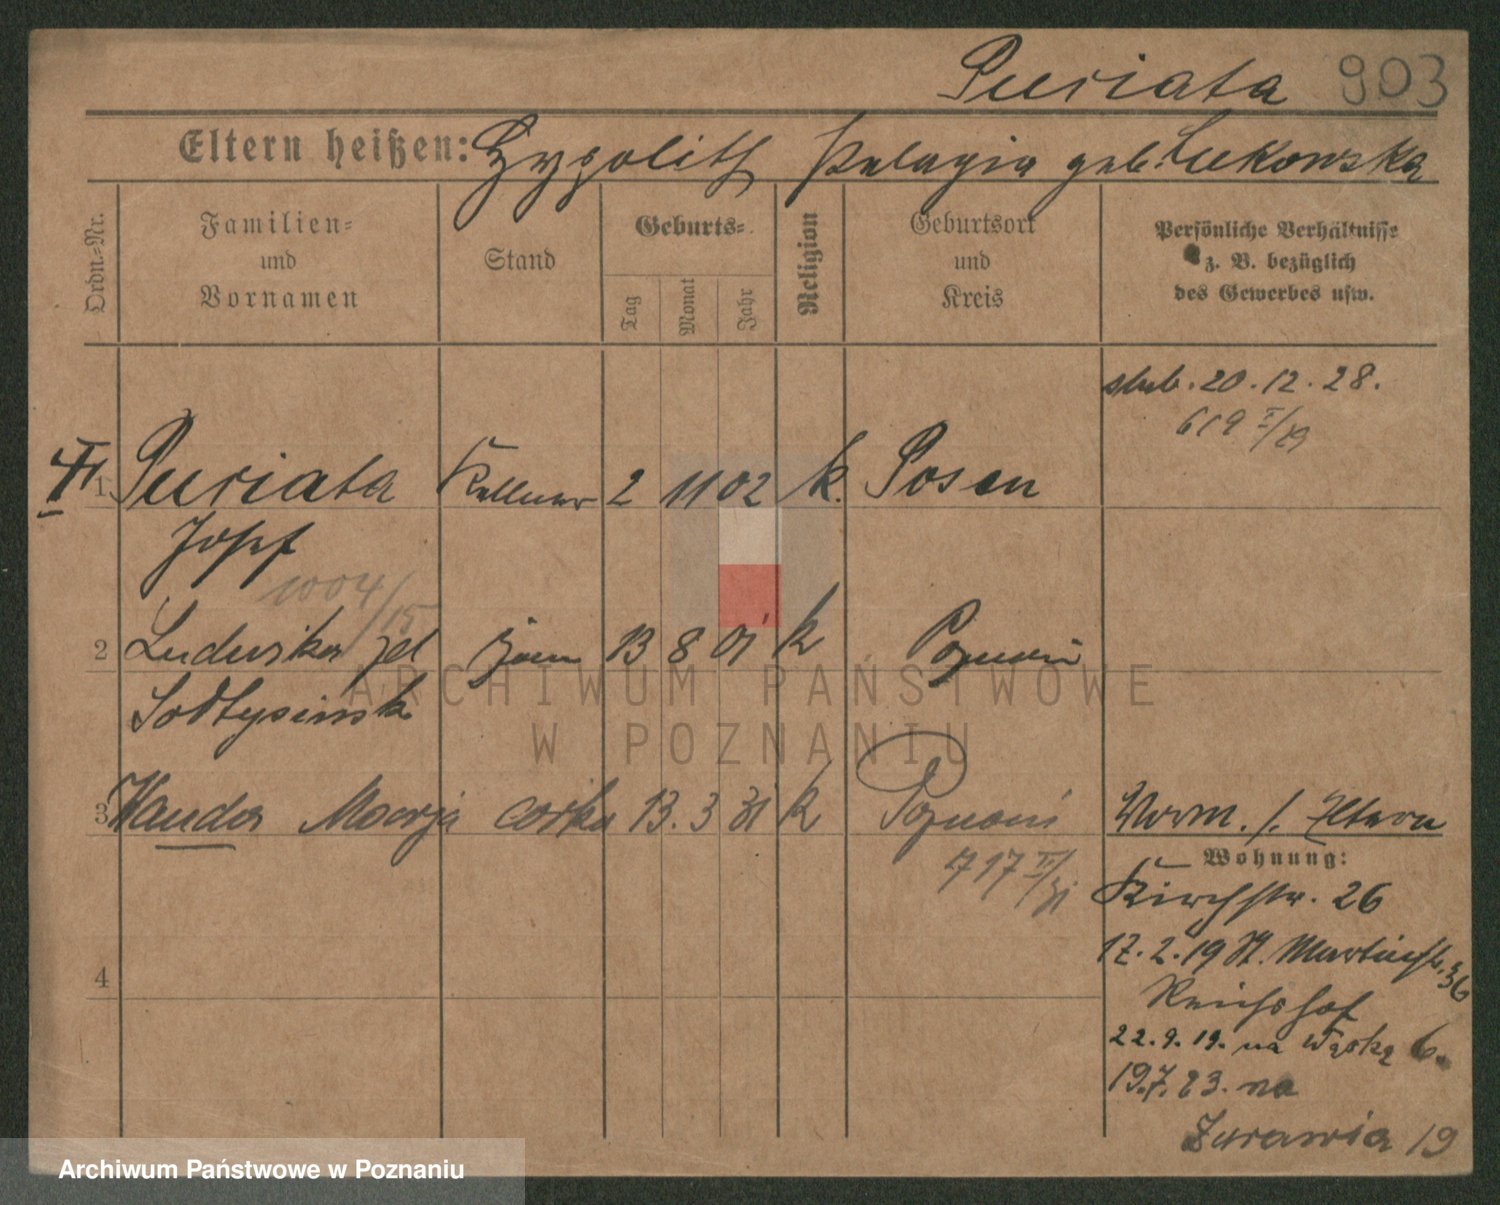 Puriata 903
Eltern heißen: Hypolith Pelagia geb. Lukowska
Ordn.-Nr.
Familien- und Vornamen
Stand
Geburts-
Tag
Monat
Jahr
Religion
Geburtsort und Kreis
Persönliche Verhältnisse
z. B. bezüglich
des Gewerbes usw.
20.12.28.
619 I/29
1 Puriata Kellner 2 11 02 k. Posen
Josef
1004/15
2 Ludwika żona 13 8 01 k Poznań
3 Wanda Marja córka 13. 3 31 k Poznań
717 II/31
Wohnung:
Kirchstr. 26
17.2.19 St. Martinstr. 36
Reichshof
22.9.19. na Wąską 6.
19.7.23. na
Żurawia 19
4
ARCHIWUM PAŃSTWOWE
W POZNANIU
Archiwum Państwowe w Poznaniu